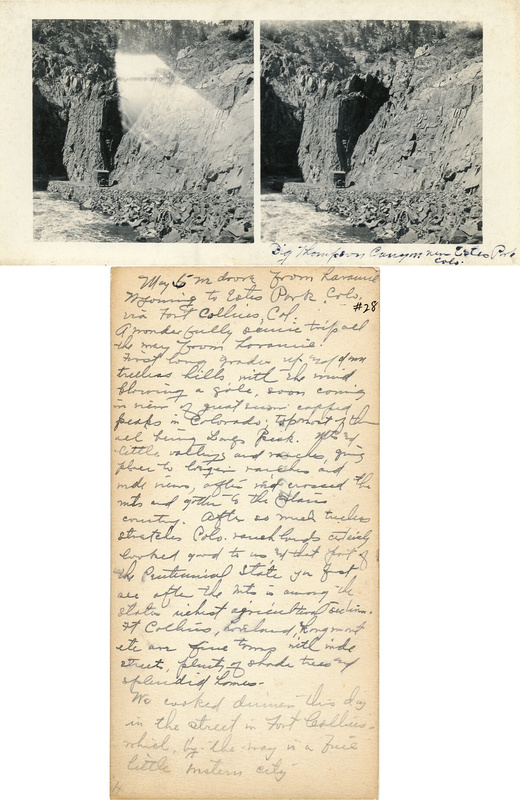 Big Thompson Canyon near Estes Park
Colo.
May 6 we drove from Laramie
Wyoming to Estes Park Colo.
#28
via Fort Collins, Col.
A wonderfully scenic trip all
the way from Laramie.
First long grades up and down
treeless hills with the wind
blowing a gale, soon coming
in view of great snow capped
peaks in Colorado, topmost of them
all being Longs Peak.
little valleys and ranches, giving
place to larger ranches and
wide views, after we'd crossed the
mts and gotten to the plains
country. After so much treeless
stretches Colo. ranch lands certainly
looked good to us, and that part of
the Centennial State you first
see after the mts is among the
states richest agricultural sections.
Ft Collins, Loveland, Longmont
etc are fine towns with wide
street, plenty of shade trees and
splendid homes.
We cooked dinner this day
in the street in Fort Collins-
which, by-the-way is a fine
little western city